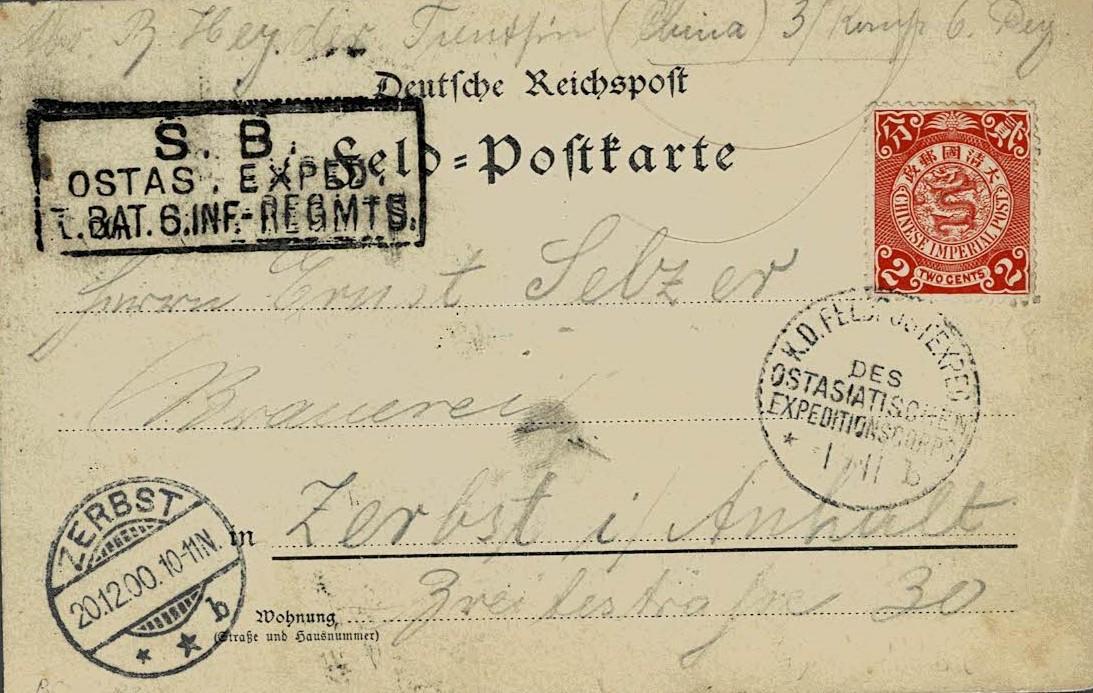 Tientsin (China) 3/ Komp 6. Reg.
Deutsche Reichspost
Feld=Postkarte
S. B.
OSTAS. EXPED.
I. BAT. 6. INF.-REGMTS.
分 貳
大清國郵政
CHINESE IMPERIAL POST
2 TWO CENTS 2
Herrn Ernst Selzer
Brauerei
K.D. FELDPOSTEXPED
DES
OSTASIATISCHEN
EXPEDITIONSCORPS
b
in Zerbst i/ Anhalt
ZERBST
20.12.00. 10-11N.
b
Wohnung Breitestraße 30
(Straße und Hausnummer)